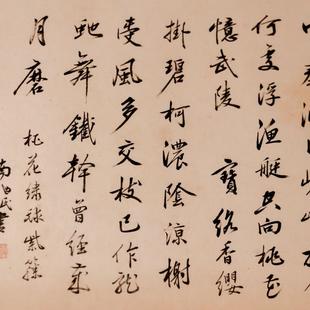 何處浮漁艇共向桃花
憶武陵 寶絡香纓
掛碧柯濃陰涼榭
受風多交枝已作龍
虵舞鐵幹曾經歲
月磨
桃花綉球紫藤
書